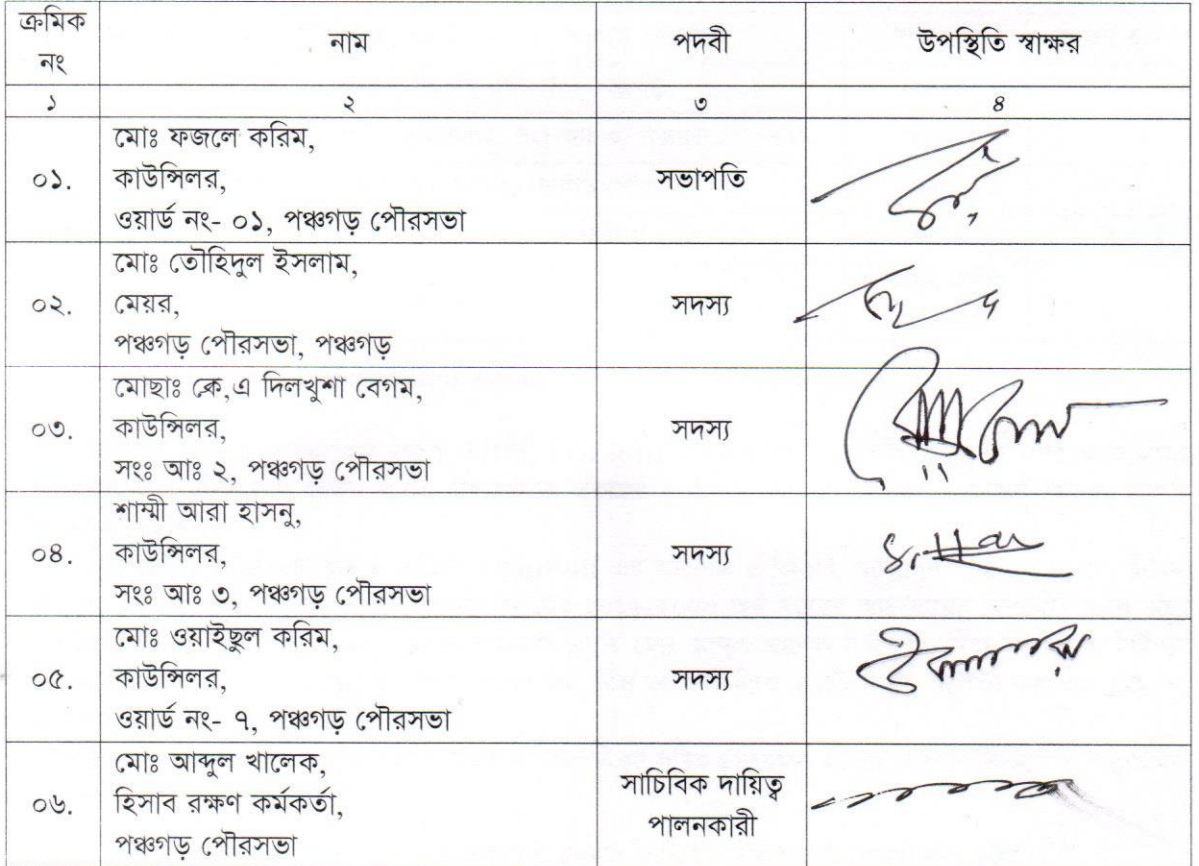 ক্রমিক
নং
নাম
পদবী
উপস্থিতি স্বাক্ষর
১
২
৩
৪
০১.
মোঃ ফজলে করিম,
কাউন্সিলর,
ওয়ার্ড নং- ০১, পঞ্চগড় পৌরসভা
সভাপতি
০২.
মোঃ তৌহিদুল ইসলাম,
মেয়র,
পঞ্চগড় পৌরসভা, পঞ্চগড়
সদস্য
০৩.
মোছাঃ কে,এ দিলখুশা বেগম,
কাউন্সিলর,
সংঃ আঃ ২, পঞ্চগড় পৌরসভা
সদস্য
০৪.
শাম্মী আরা হাসনু,
কাউন্সিলর,
সংঃ আঃ ৩, পঞ্চগড় পৌরসভা
সদস্য
০৫.
মোঃ ওয়াইছুল করিম,
কাউন্সিলর,
ওয়ার্ড নং- ৭, পঞ্চগড় পৌরসভা
সদস্য
০৬.
মোঃ আব্দুল খালেক,
হিসাব রক্ষণ কর্মকর্তা,
পঞ্চগড় পৌরসভা
সাচিবিক দায়িত্ব
পালনকারী